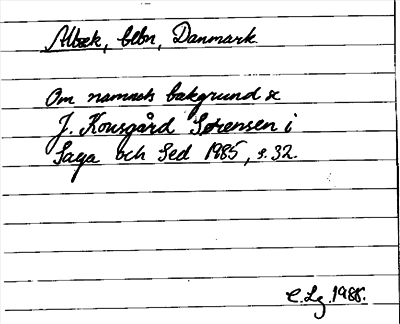 Albæk, blbn, Danmark
Om namnets bakgrund se
J. Kousgård Sørensen i
Saga och Sed 1985, s. 32.
C. Lg. 1988.